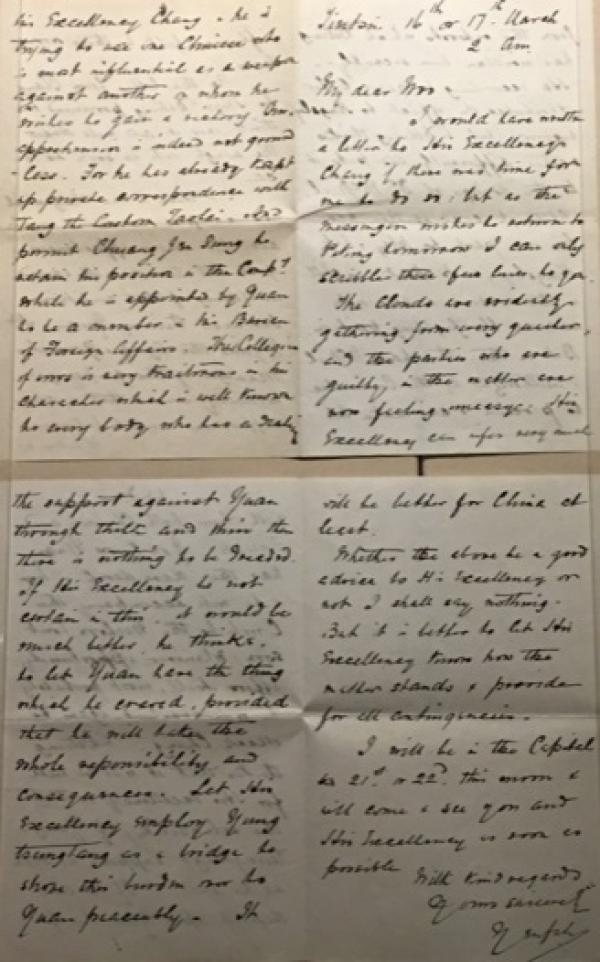 Tintsin, 16th or 17th March
2 am.
My dear Woo
I would have written
a letter to His Excellency
Chang if there was time for
me to do so; but as the
messenger wishes to return to
Peking tomorrow I can only
scribble these few lines to you.
The Clouds are evidently
gathering form every quarter,
and the parties who are
guilty in the matter are
now feeling uneasy. His
Excellency can very much
his Excellency Chang - he is
trying to use one Chinese who
is most influential as a weapon
against another on whom he
wishes to gain a victory. Our
apprehension is indeed not ground
-less. For he has already kept
up private correspondence with
Tang the Custom Taotai. And
permit Chuang Jen Sung to
retain his position in the Compy
while he is appointed by Yuan
to be a member in his Bureau
of Foreign Affairs. This Colleague
of ours is very traitorous in his
character which is well known
to every body who has a dealing
the support against Yuan
through thick and thin then
there is nothing to be dreaded.
If His Excellency be not
certain in this, it would be
much better, he thinks,
to let Yuan have the thing
which he craved, provided
that he will take the
whole reponsibility and
consequences. Let His
Excellency employ Yang
tsungtang as a bridge to
shove this burden over to
Yuan peaceably. It
will be better for China at
least.
Whether the above be a good
advice to His Excellency or
not I shall say nothing.
But it is better to let His
Excellency know how the
matter stands & provide
for all contingencies.
I will be in the Capital
on 21st or 22d this moon &
will come & see you and
His Excellency as soon as
possible
With kind regards
Yours sincerely